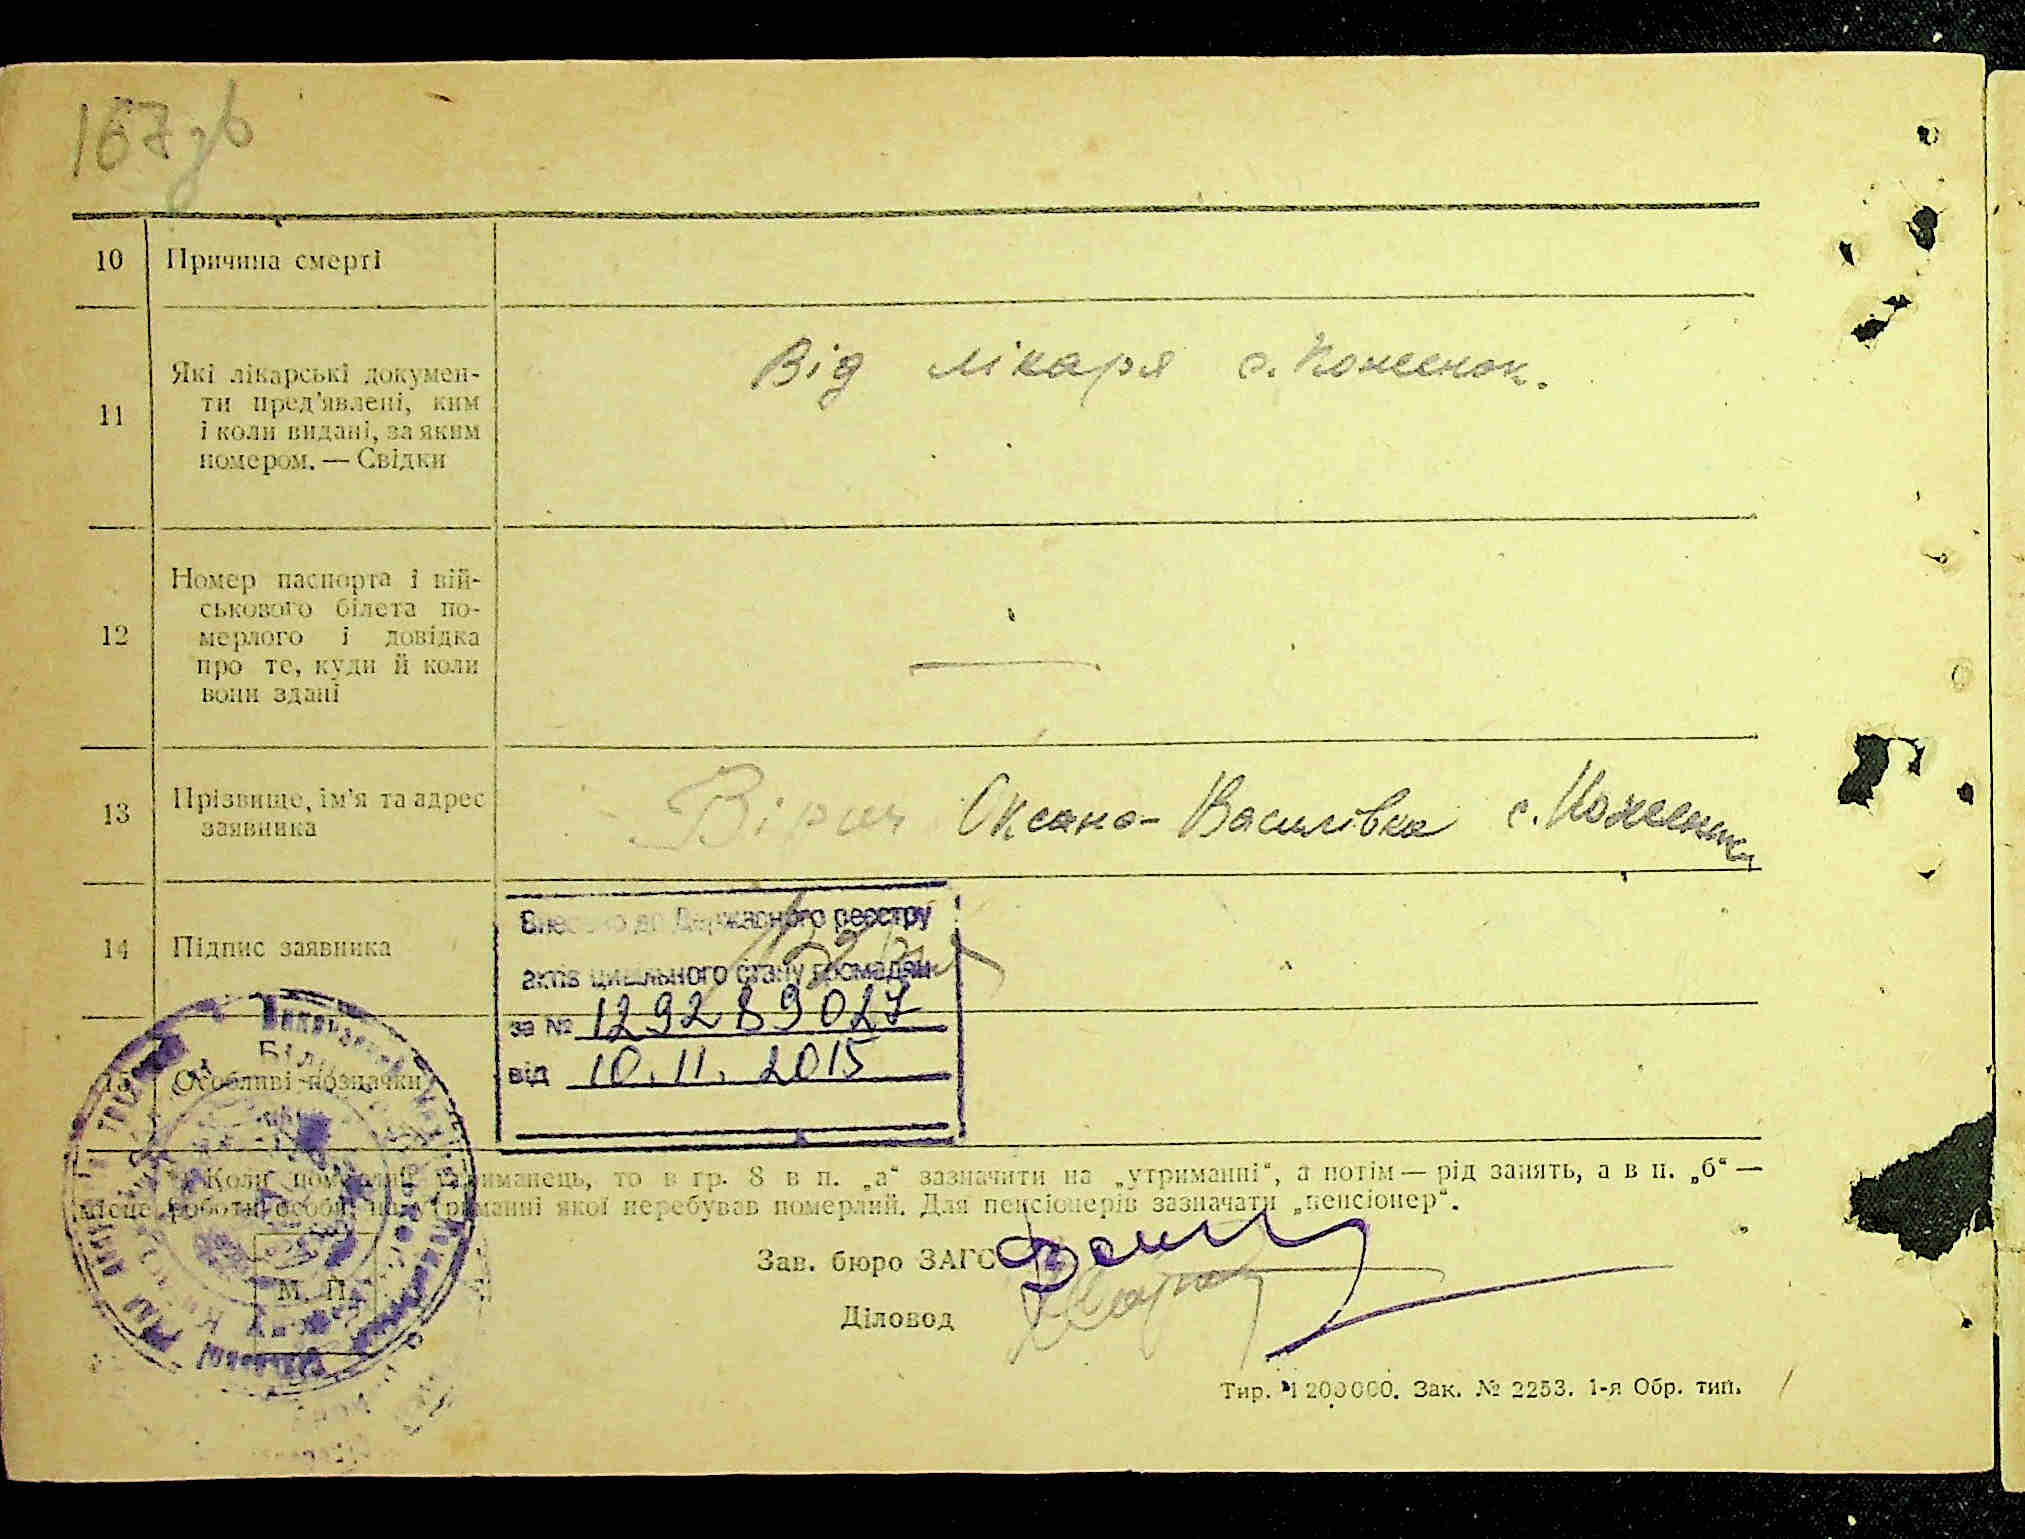 167зв
10 Причина смерті
11 Які лікарські докумен-
ти пред'явлені, ким
і коли видані, за яким
номером. — Свідки
Від лікаря с. Коженок.
12 Номер паспорта і вій-
ськового білета по-
мерлого і довідка
про те, куди й коли
вони здані
—
13 Прізвище, ім'я та адрес
заявника
Оксана Василівка с. Коженки
14 Підпис заявника
Внесено до Державного реєстру
актів цивільного стану громадян
за № 1292 89027
від 10.11.2015
15 Особливі позначки
Коли померлий утриманець, то в гр. 8 в п. „а“ зазначити на „утриманні“, а потім — рід занять, а в п. „б“ —
місце роботи особи, на утриманні якої перебував померлий. Для пенсіонерів зазначати „пенсіонер“.
Зав. бюро ЗАГС
М. П.
Діловод
Тир. 1 200000. Зак. № 2253. 1-я Обр. тип.